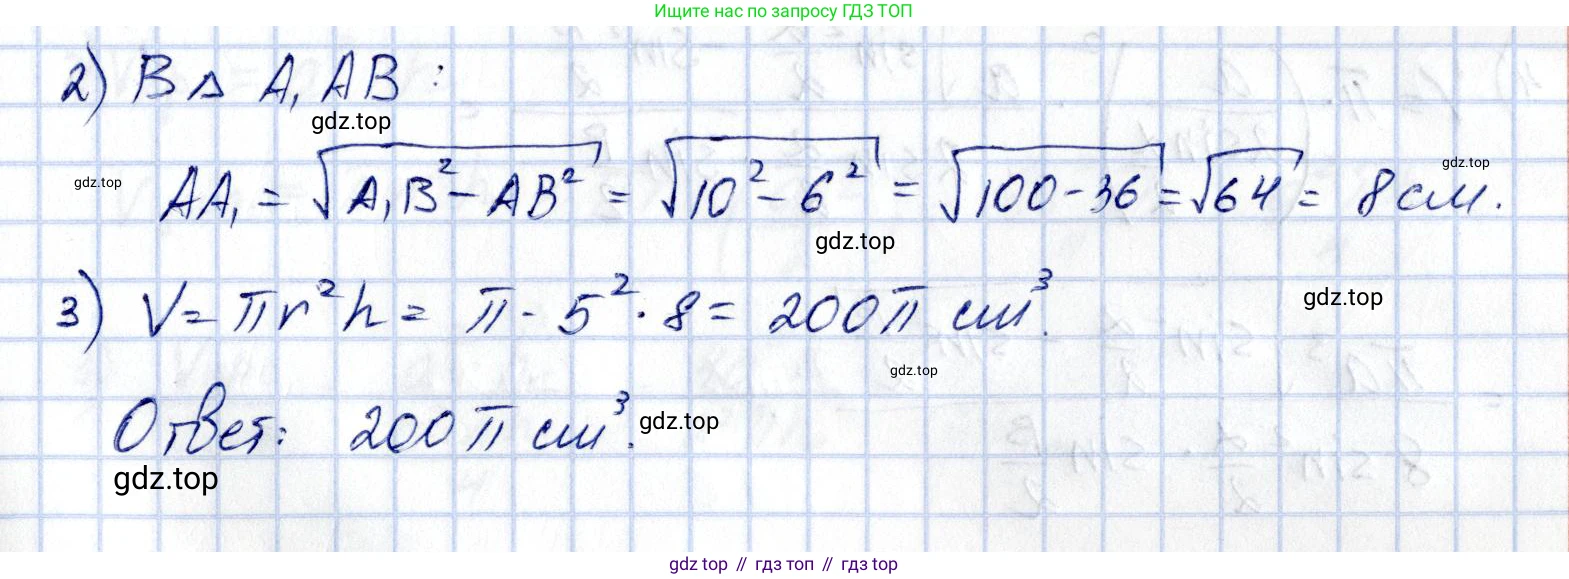 Ищите нас по запросу ГДЗ ТОП
2) В Δ A₁AB :
gdz.top
gdz.top
gdz.top
AA₁ = √(A₁B² - AB²) = √(10² - 6²) = √(100 - 36) = √64 = 8 см.
gdz.top
3) V = πr²h = π · 5² · 8 = 200π см³.
gdz.top
gdz.top
Ответ: 200π см³.
gdz.top
gdz.top
gdz top // гдз топ // gdz top